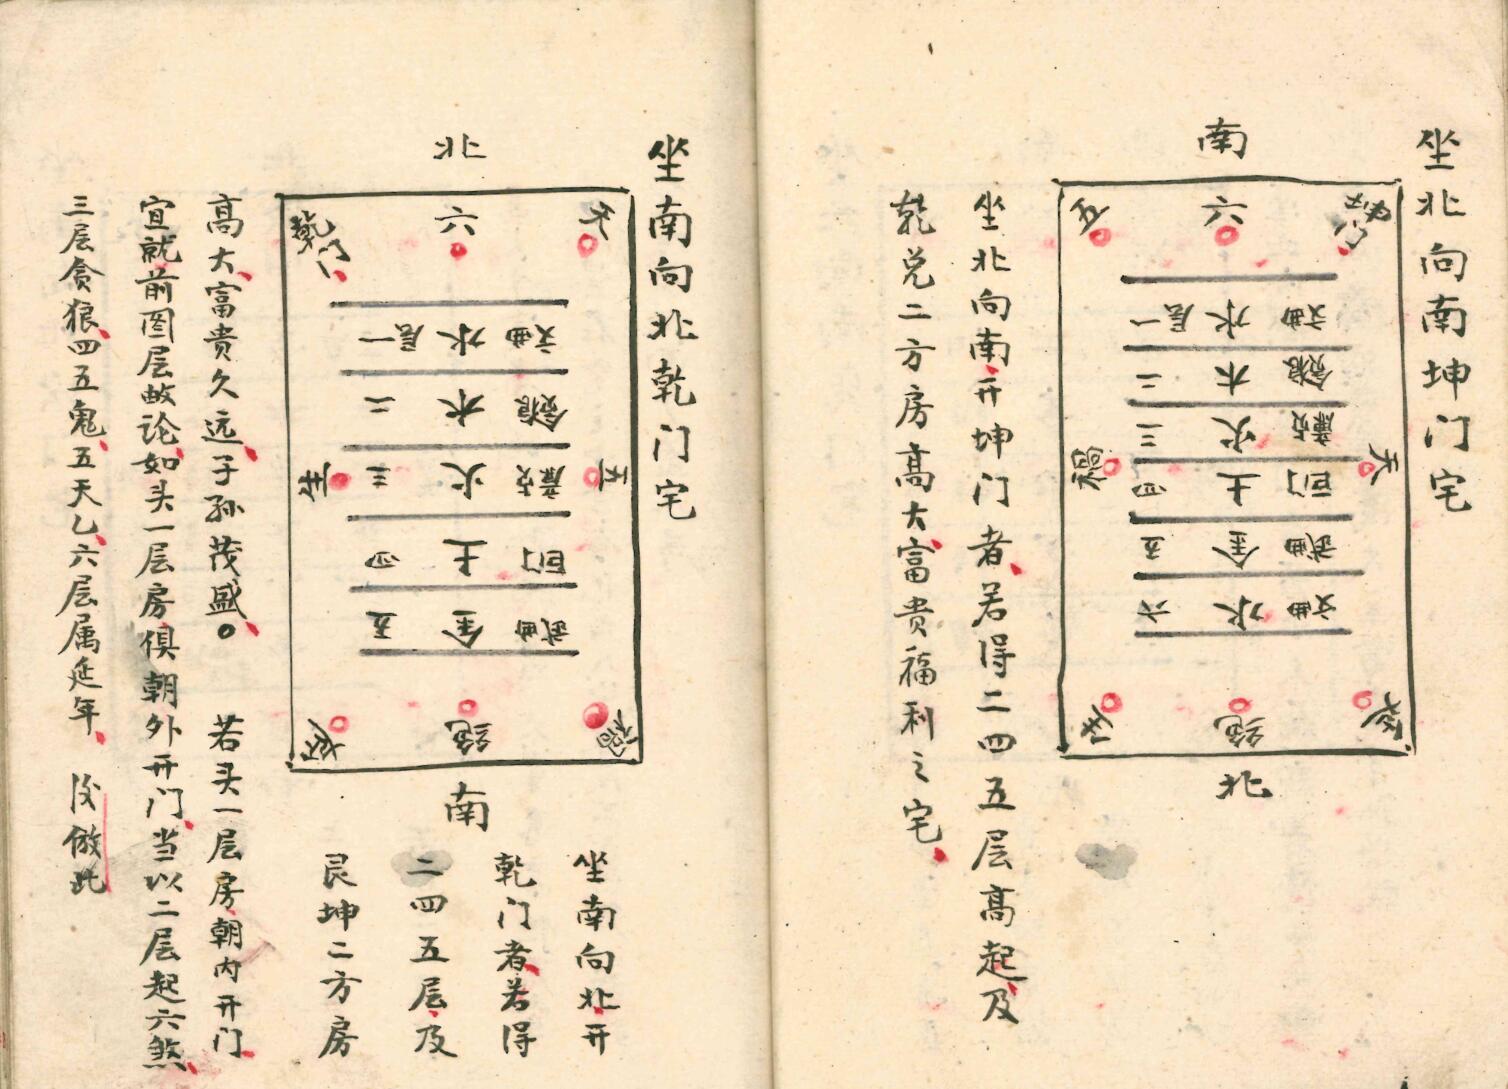 坐北向南坤门宅
南
坤门
六
五
一层 水 文曲
二 木 贪狼
三 火 廉贞
四 土 巨门
五 金 武曲
六 水 文曲
天
禍
煞
绝
生
北
坐北向南开坤门者若得二四五层高起及
乾兑二方房高大富贵福利之宅
坐南向北乾门宅
北
天
六
乾门
一层 水 文曲
二 木 贪狼
三 火 廉贞
四 土 巨门
五 金 武曲
五
生
禍
绝
延
南
坐南向北开
乾门者若得
二四五层及
艮坤二方房
高大富贵久远子孙茂盛。 若头一层房朝内开门
宜就前图层数论如头一层房俱朝外开门当以二层起六煞
三层贪狼四五鬼五天乙六层属延年 後倣此